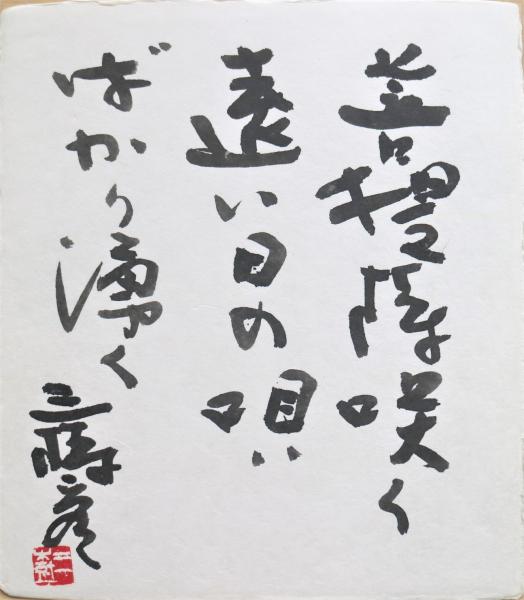 菩提樹咲く
遠い日の唄
ばかり湧く
三樹彦